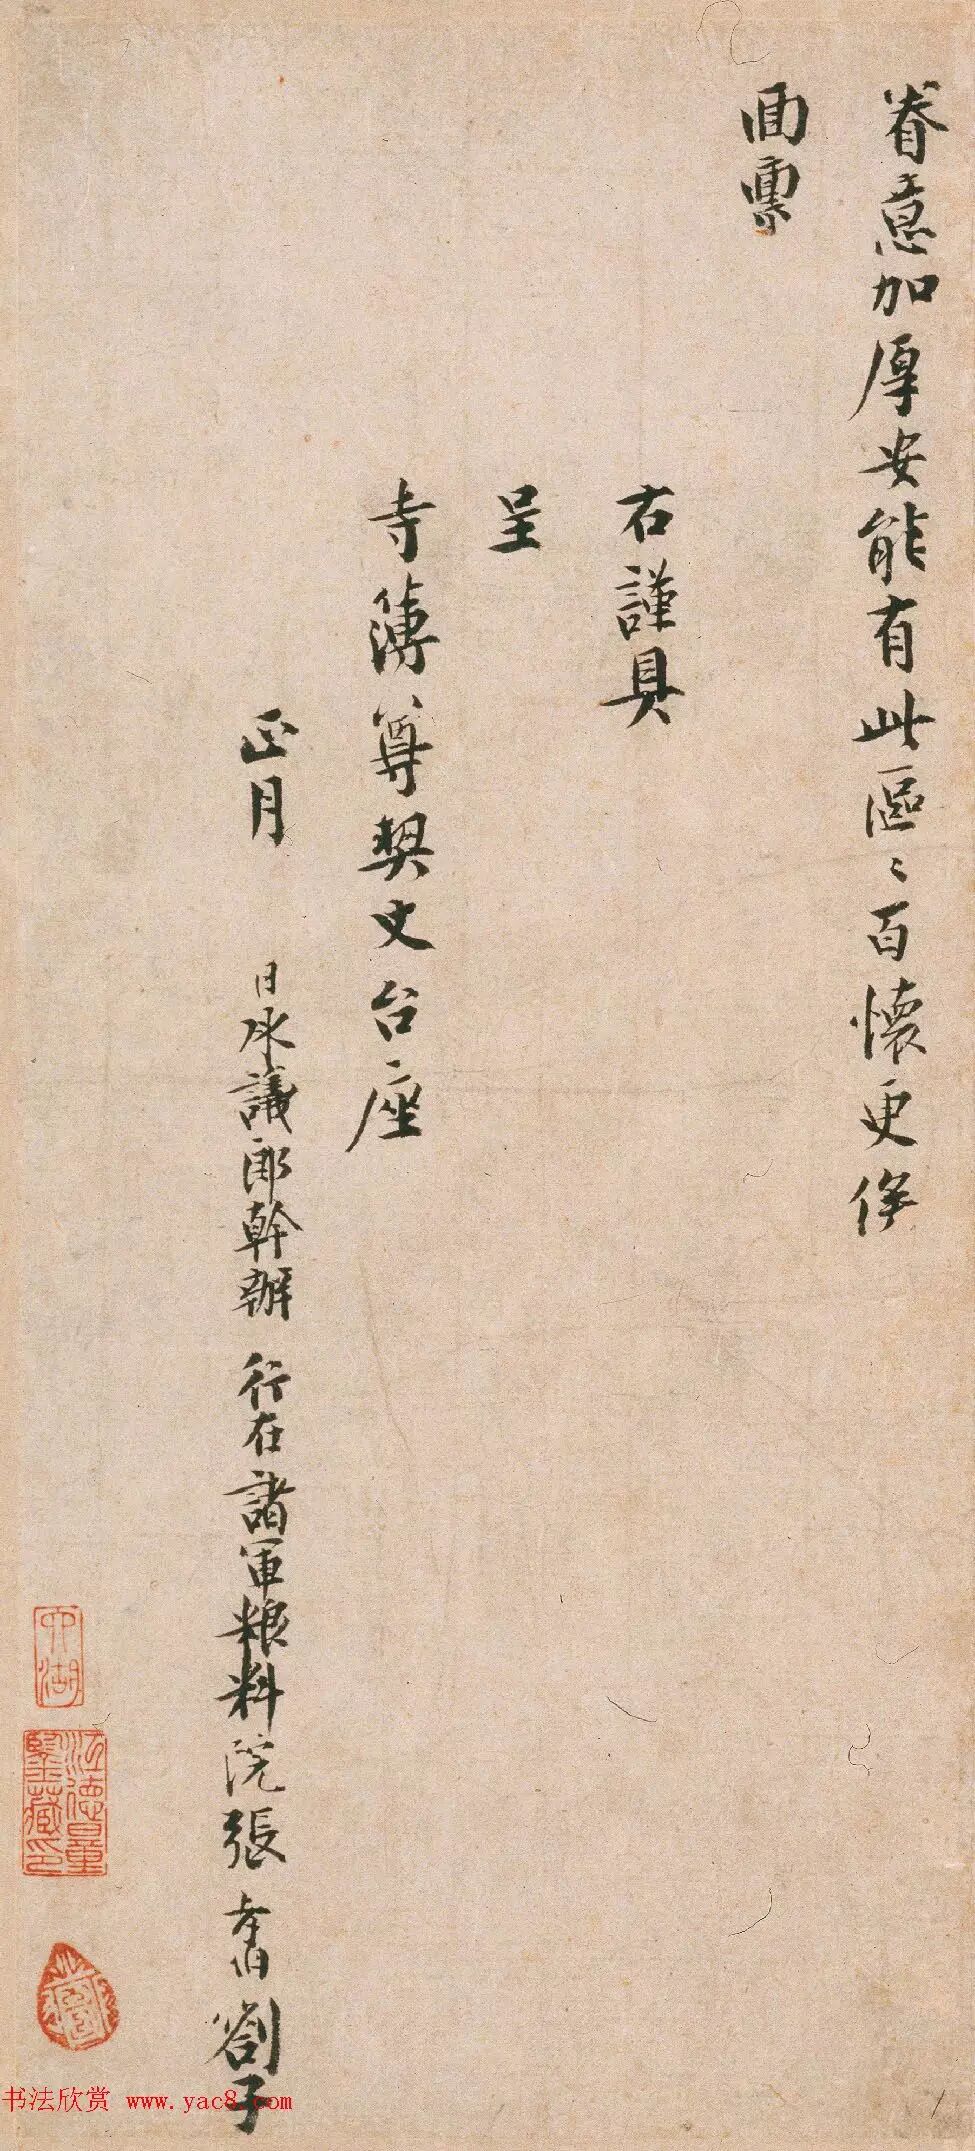 眷意加厚安能有此區〻百懷更俟
面㐮
右謹具
呈
寺簿尊契丈台座
正月 日承議郎幹辦 行在諸軍粮料院張 劄子
六湖
江德量
鑒藏印
书法欣赏 www.yac8.com